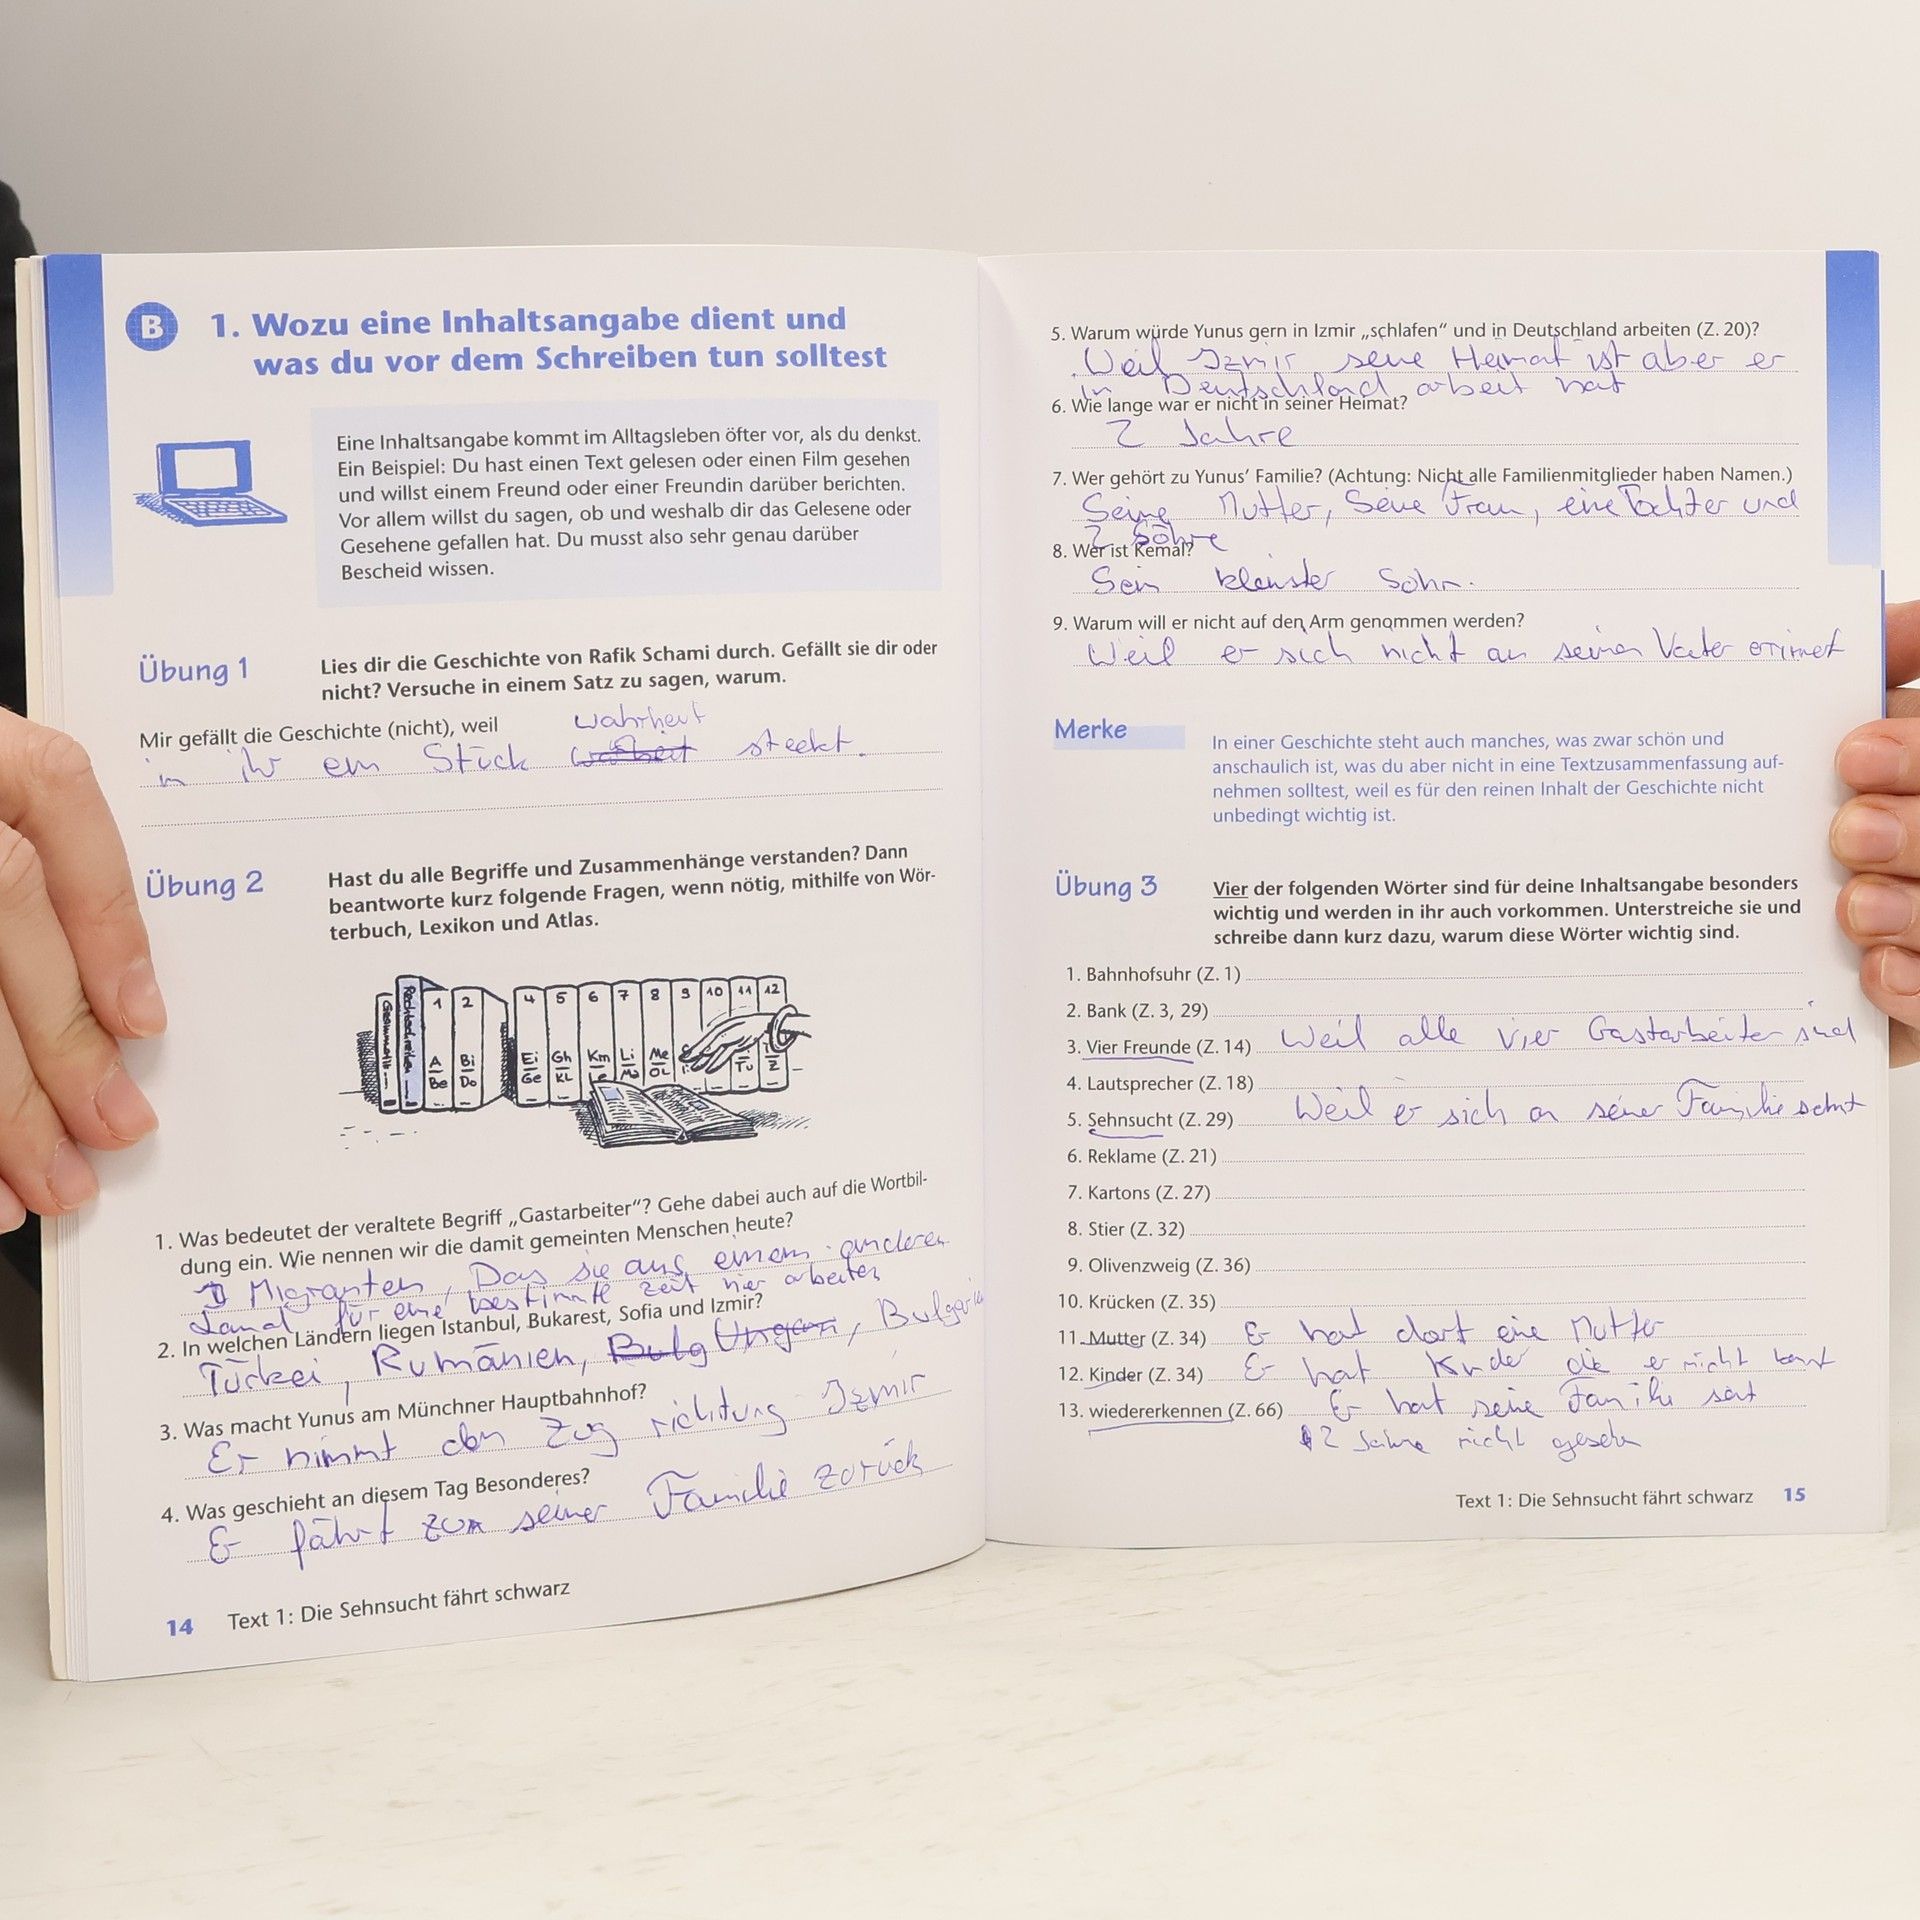 B
1. Wozu eine Inhaltsangabe dient und
was du vor dem Schreiben tun solltest
Eine Inhaltsangabe kommt im Alltagsleben öfter vor, als du denkst.
Ein Beispiel: Du hast einen Text gelesen oder einen Film gesehen
und willst einem Freund oder einer Freundin darüber berichten.
Vor allem willst du sagen, ob und weshalb dir das Gelesene oder
Gesehene gefallen hat. Du musst also sehr genau darüber
Bescheid wissen.
Übung 1
Lies dir die Geschichte von Rafik Schami durch. Gefällt sie dir oder
nicht? Versuche in einem Satz zu sagen, warum.
Mir gefällt die Geschichte (nicht), weil
wahrheit
in ihr ein Stück steckt.
Übung 2
Hast du alle Begriffe und Zusammenhänge verstanden? Dann
beantworte kurz folgende Fragen, wenn nötig, mithilfe von Wör-
terbuch, Lexikon und Atlas.
Grammatik Rechtschreiben 1 2 4 5 6 7 8 9 10 11 12
A Be Bi Do Ei Ge Gh KL Km Le Li Me OL Tu Z
1. Was bedeutet der veraltete Begriff „Gastarbeiter“? Gehe dabei auch auf die Wortbil-
dung ein. Wie nennen wir die damit gemeinten Menschen heute?
Migranten, Das sie aus einem anderen
Land für eine bestimmte zeit hier arbeiten
2. In welchen Ländern liegen Istanbul, Bukarest, Sofia und Izmir?
Türkei, Rumänien, Bulg Ungarn, Bulgarien
3. Was macht Yunus am Münchner Hauptbahnhof?
Er nimmt den Zug richtung Izmir
4. Was geschieht an diesem Tag Besonderes?
Er fährt zu seiner Familie zurück
14 Text 1: Die Sehnsucht fährt schwarz
5. Warum würde Yunus gern in Izmir „schlafen“ und in Deutschland arbeiten (Z. 20)?
Weil Izmir seine Heimat ist aber er
in Deutschland arbeit hat
6. Wie lange war er nicht in seiner Heimat?
2 Jahre
7. Wer gehört zu Yunus’ Familie? (Achtung: Nicht alle Familienmitglieder haben Namen.)
Seine Mutter, Seine Frau, eine Tochter und
2 Söhne
8. Wer ist Kemal?
Sein kleinster Sohn.
9. Warum will er nicht auf den Arm genommen werden?
Weil er sich nicht an seinen Vater errinert
Merke
In einer Geschichte steht auch manches, was zwar schön und
anschaulich ist, was du aber nicht in eine Textzusammenfassung auf-
nehmen solltest, weil es für den reinen Inhalt der Geschichte nicht
unbedingt wichtig ist.
Übung 3
Vier der folgenden Wörter sind für deine Inhaltsangabe besonders
wichtig und werden in ihr auch vorkommen. Unterstreiche sie und
schreibe dann kurz dazu, warum diese Wörter wichtig sind.
1. Bahnhofsuhr (Z. 1)
2. Bank (Z. 3, 29)
3. Vier Freunde (Z. 14) Weil alle vier Gastarbeiter sind
4. Lautsprecher (Z. 18)
5. Sehnsucht (Z. 29) Weil er sich an seiner Familie sehnt
6. Reklame (Z. 21)
7. Kartons (Z. 27)
8. Stier (Z. 32)
9. Olivenzweig (Z. 36)
10. Krücken (Z. 35)
11. Mutter (Z. 34) Er hat dort eine Mutter
12. Kinder (Z. 34) Er hat Kinder die er nicht kennt
13. wiedererkennen (Z. 66) Er hat seine Familie seit
2 Jahre nicht gesehen
Text 1: Die Sehnsucht fährt schwarz 15